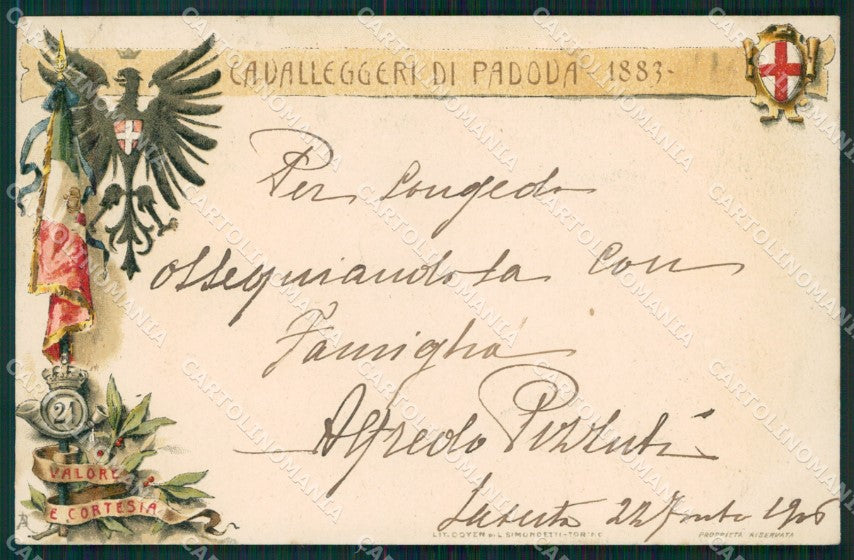 CAVALLEGGERI DI PADOVA 1883-
Per Congedo
ossequiandola con
Famiglia
Alfredo Pizzuti
22 1906
21
VALORE
E CORTESIA
LIT. DOYEN DI L. SIMONDETTI-TORINO
PROPRIETÀ RISERVATA
CARTOLINOMANIA